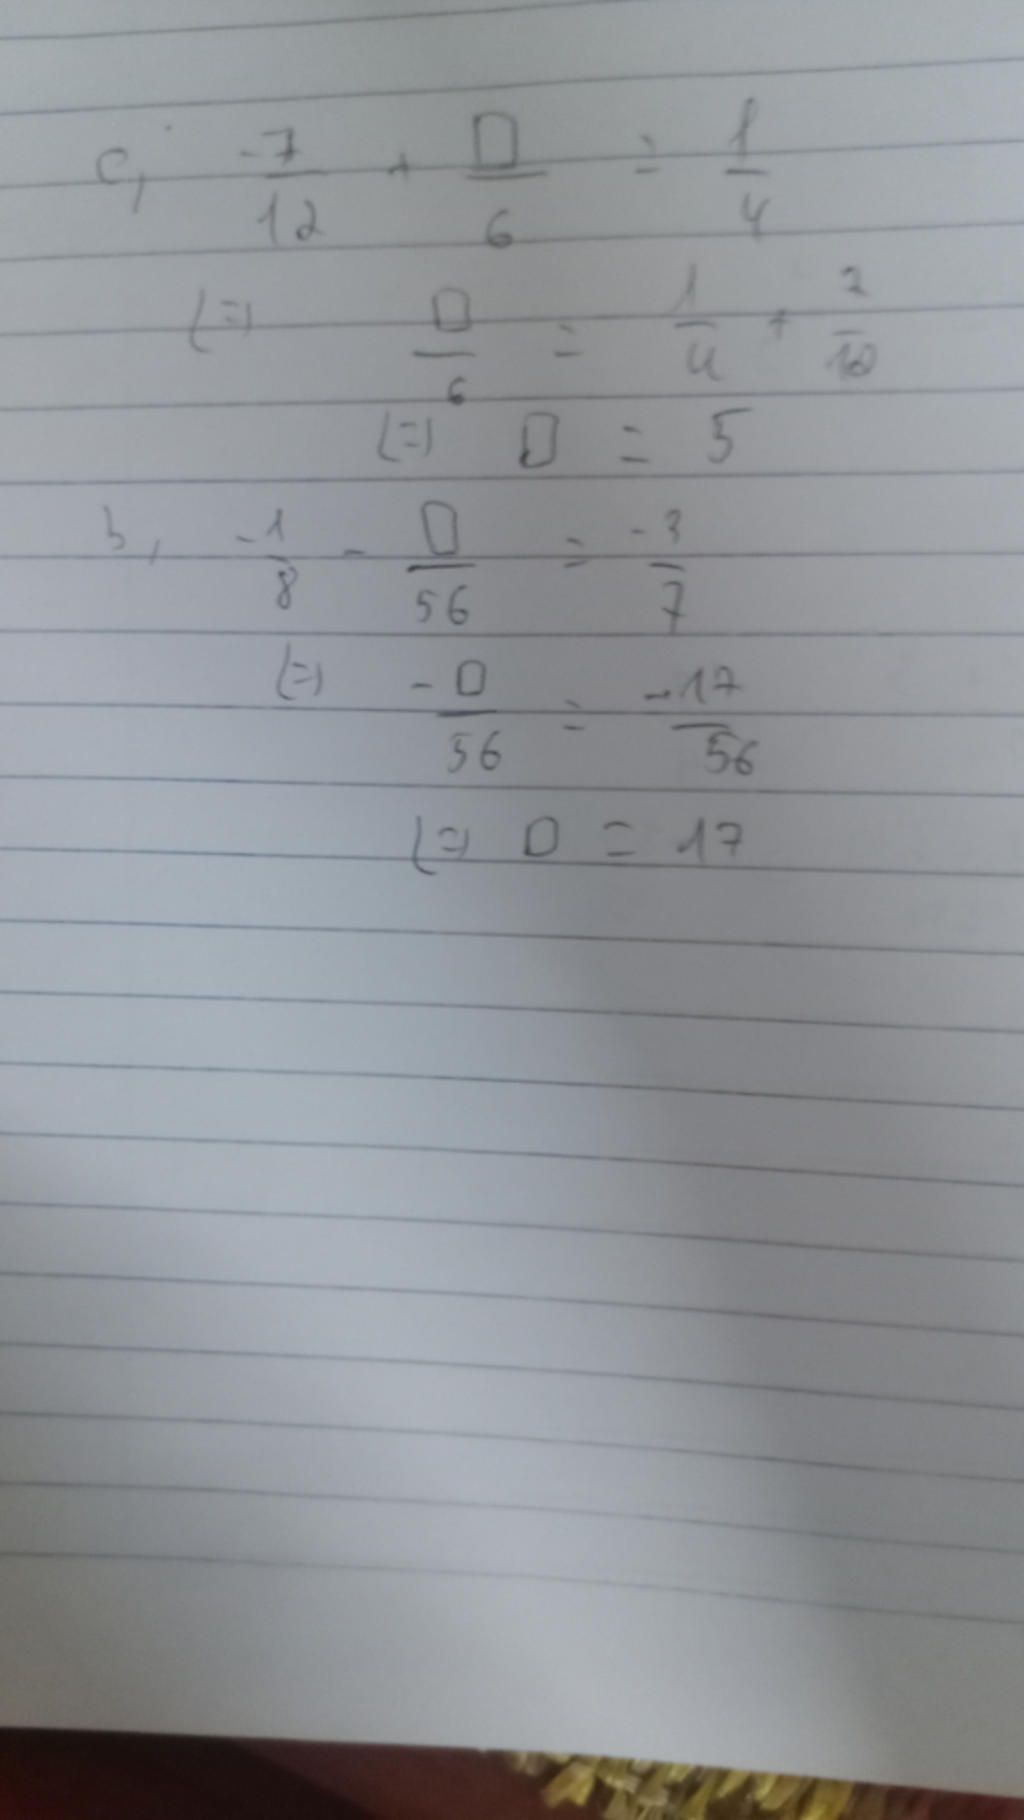 c, -7/12 + □/6 = 1/4
(=) □/6 = 1/4 + 7/12
(=) □ = 5
b, -1/8 - □/56 = -3/7
(=) -□/56 = -17/56
(=) □ = 17